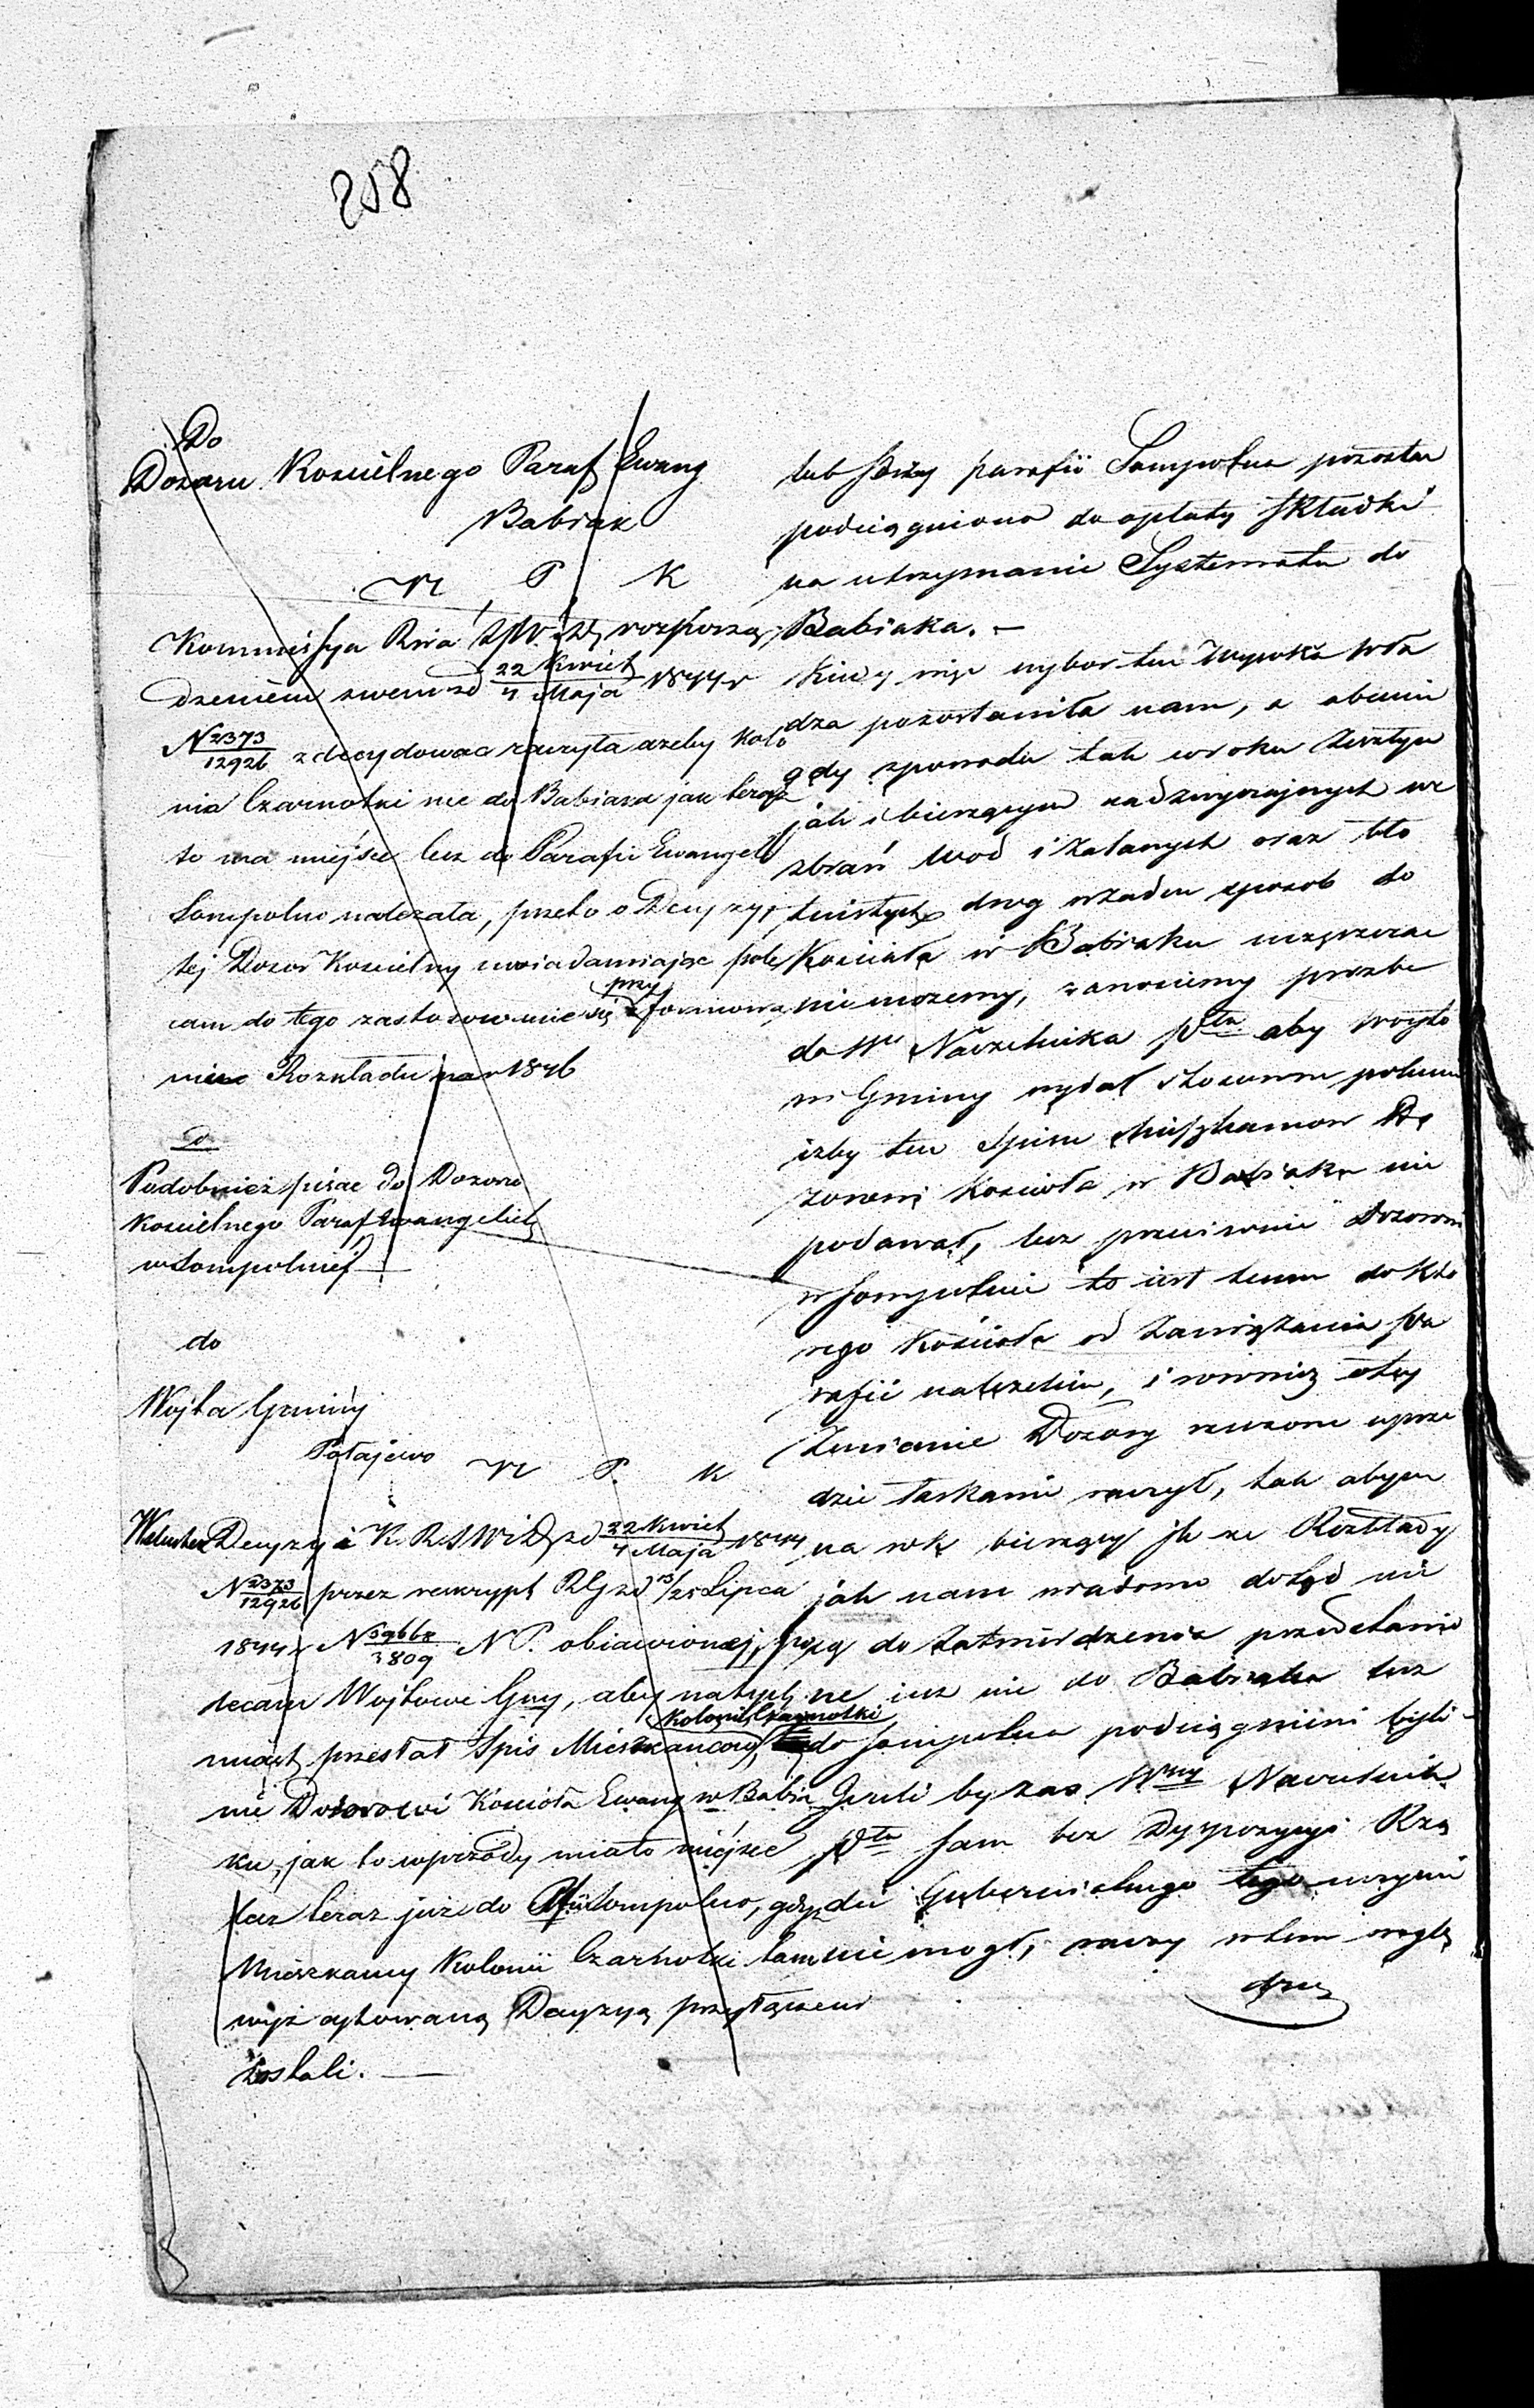 258
Do
Dozoru Kościelnego Paraf Ewang
Babiak
N P K
Kommissya Rwa SpW i D, rozporzą
dzeniem swem zd 22 Kwiet / 4 Maja 1844 r
N 2373 / 12926 zdecydować raczyła azeby Kolo
nia Czarnotki nie do Babiaka jak teraz
to ma miejsce lecz do Parafii Ewangel
Sompolno należała, przeto o Decyzyi
tej Dozor Kościelny uwiadamiając pole
cam do tego zastosowanie się przy formowa
niu Rozkładu na r 1846
Do
Podobnież pisac do Dozoru
Kościelnego Paraf Ewangelick
w Sompolnie
do
Wojta Gminy
Połajewo N P. K
W skutek Decyzyi K. R. S W i D, zd 22 Kwiet / 4 Maja 1844
N 2373 / 12926 przez reskrypt RG zd 13/25 Lipca
1844 r N 59668 / 3809 N P. obiawionej, po
lecam Wojtowi Gny, aby natych
Kolonii Czarnotki
miast przestał Spis Mieszkancow
nie Dozorowi Kościoła Ewang w Babia
ku, jak to wprzódy miało miejsce
lecz teraz już do Pfii Sompolno, gdyz
Mieszkancy Kolonii Czarnotki tam
wyż cytowaną Decyzyą przyłączeni
zostali.
lub też parafii Sompolna pozostac
podciągniono do opłaty składki
na utrzymanie Systematu do
Babiaka. –
Kiedy więc wybor ten Wysoka Wła
dza pozostawiła nam, a obecnie
gdy z powodu tak w roku zeszłym
jak i bieżącym nadzwyczajnych we
zbrań wod i zalanych oraz bło
tnistych drog w żaden sposob do
Kościoła w Babiaku uczęszczac
nie możemy, zanosiemy prozbe
do W Naczelnika Ptu aby Woyto
wi Gminy wydał stosowne poleceni
izby ten Spisu Mieszkancow Do
zorowi Kościoła w Babiaku nie
podawał, lecz przeciwnie Dozorowi
w Sompolnie to iest temu do Kto
rego Kościoła od zawiązania Pa
rafii należelim, i rownież o tey
Zmianie Dozory rzeczone uprze
dzić łaskawie raczył, tak abysm
na rok bieżący jle ze Rozkłady
jak nam wiadomo dotąd nie
są do Zatwierdzenia przedstawio
ne iuz nie do Babiaka lecz
do Sompolna podciągnieni byli –
Jezeli by zas Wny Naczelnik
Ptu sam bez Dyspozycyi Rzą
du Gubernialnego tego uczynic
nie mogł, raczy w tem wzglę
dzie